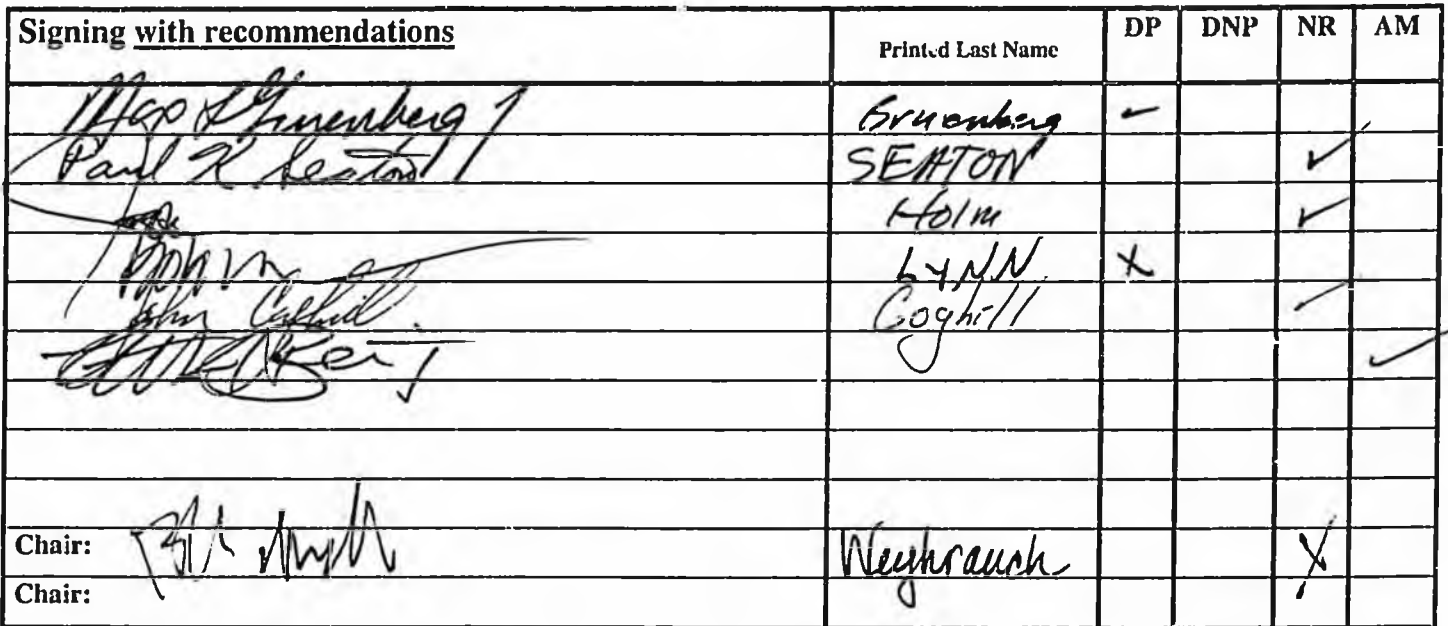 Signing with recommendations Printed Last Name DP DNP NR AM
Max F Gruenberg Gruenberg ✓
Paul K Seaton SEATON ✓
Holm ✓
LYNN X
John Coghill Coghill ✓
✓
Chair: Weyhrauch X
Chair: